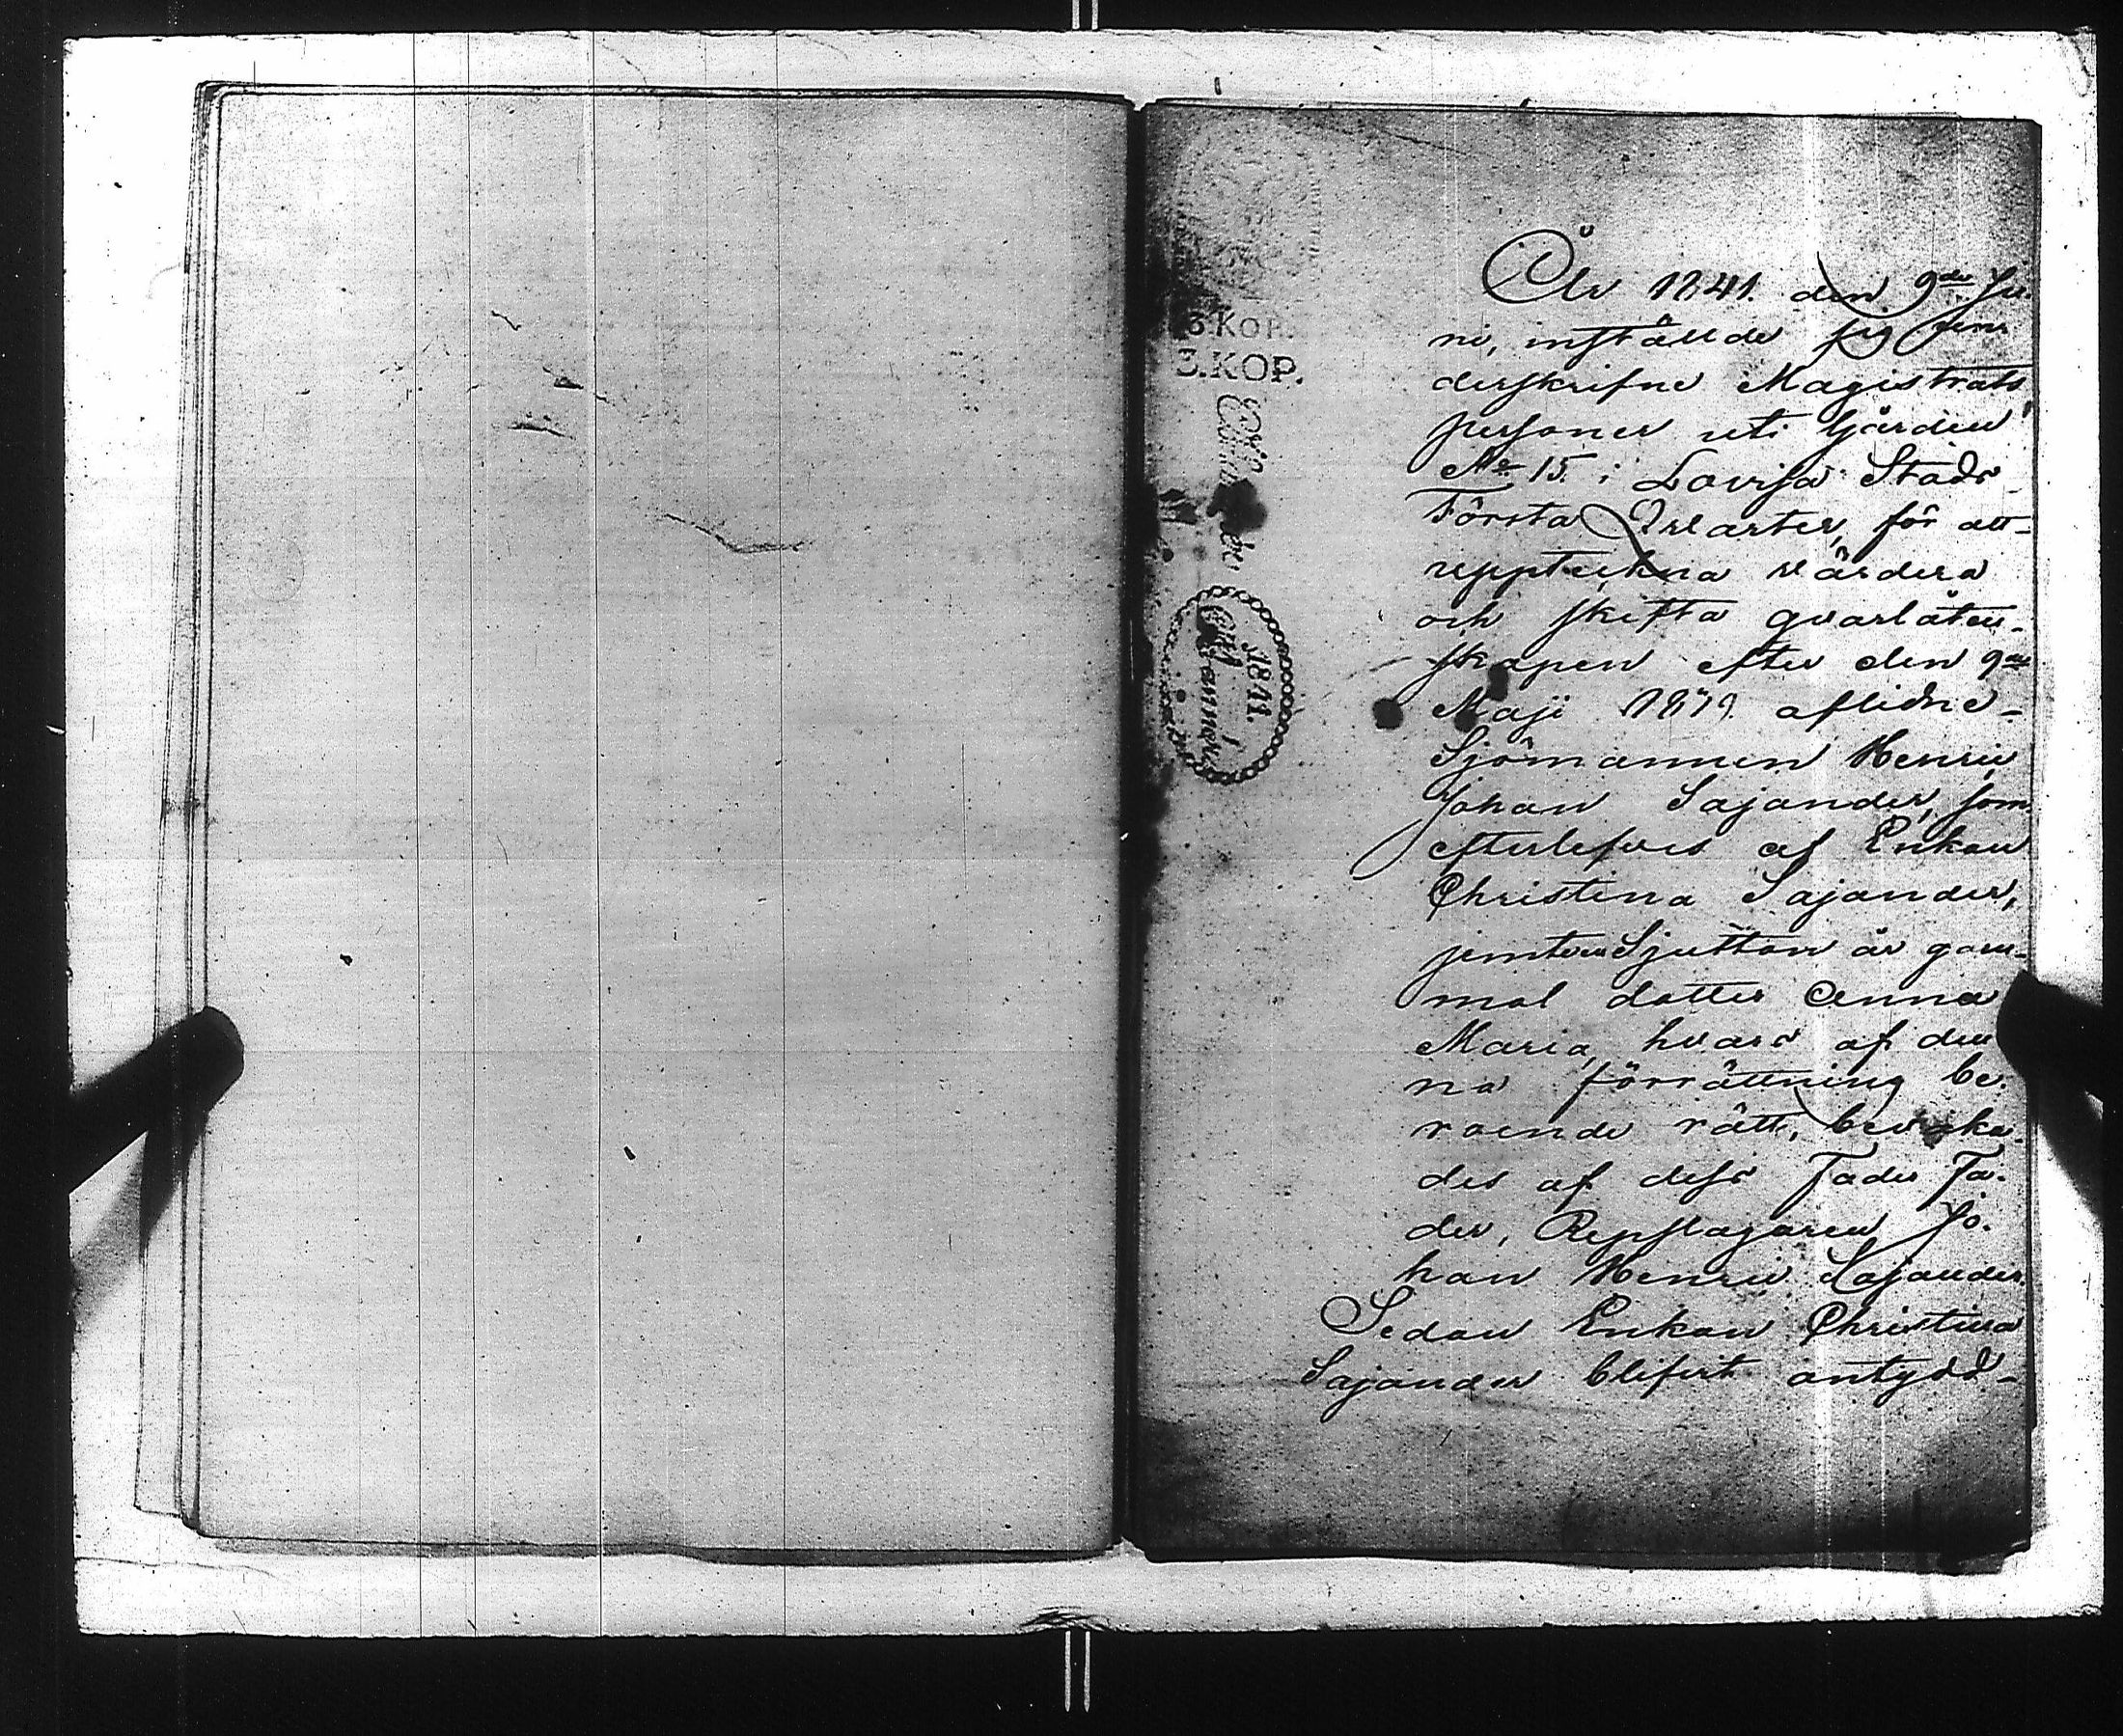 År 1841. den 9de Ju-
ni, inställde sig un-
derskrifne Magistrats
personer uti Gården
No 15. i Lovisa Stads
Första Qvarter, för att
uppteckna värdera
och skifta qvarlåten-
skapen efter den 9de
Maji aflidne
Sjömannen Henric
Johan Sajander, som
efterlefves af Enkan
Christina Sajander,
jemte en Sjutton år gam-
mal dotter Anna
Maria, hvars af den
na förrättning be-
roende rätt, bevaka-
des af dess Fader Fa-
der, Repslagaren Jo-
han Henric Sajander
Sedan Enkan Christina
Sajander blifvit antydd
3.KOP.
3.KOP.
1841.